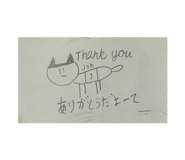 Thank you
Jun
ありがとうだよーて